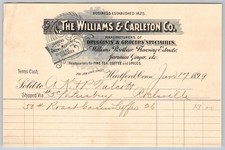 BUSINESS ESTABLISHED 1825.
THE WILLIAMS & CARLETON CO.
MANUFACTURERS OF
DRUGGISTS & GROCERS' SPECIALTIES,
Williams Flavoring Extracts,
Jamaica Ginger, etc.
Headquarters for FINE TEA, COFFEE AND SPICES.
Terms Cash
Hartford, Conn. Jan 17 1894
Sold to A. K. Talcott
Shipped Via
50# Roast Coffee 26 13.00